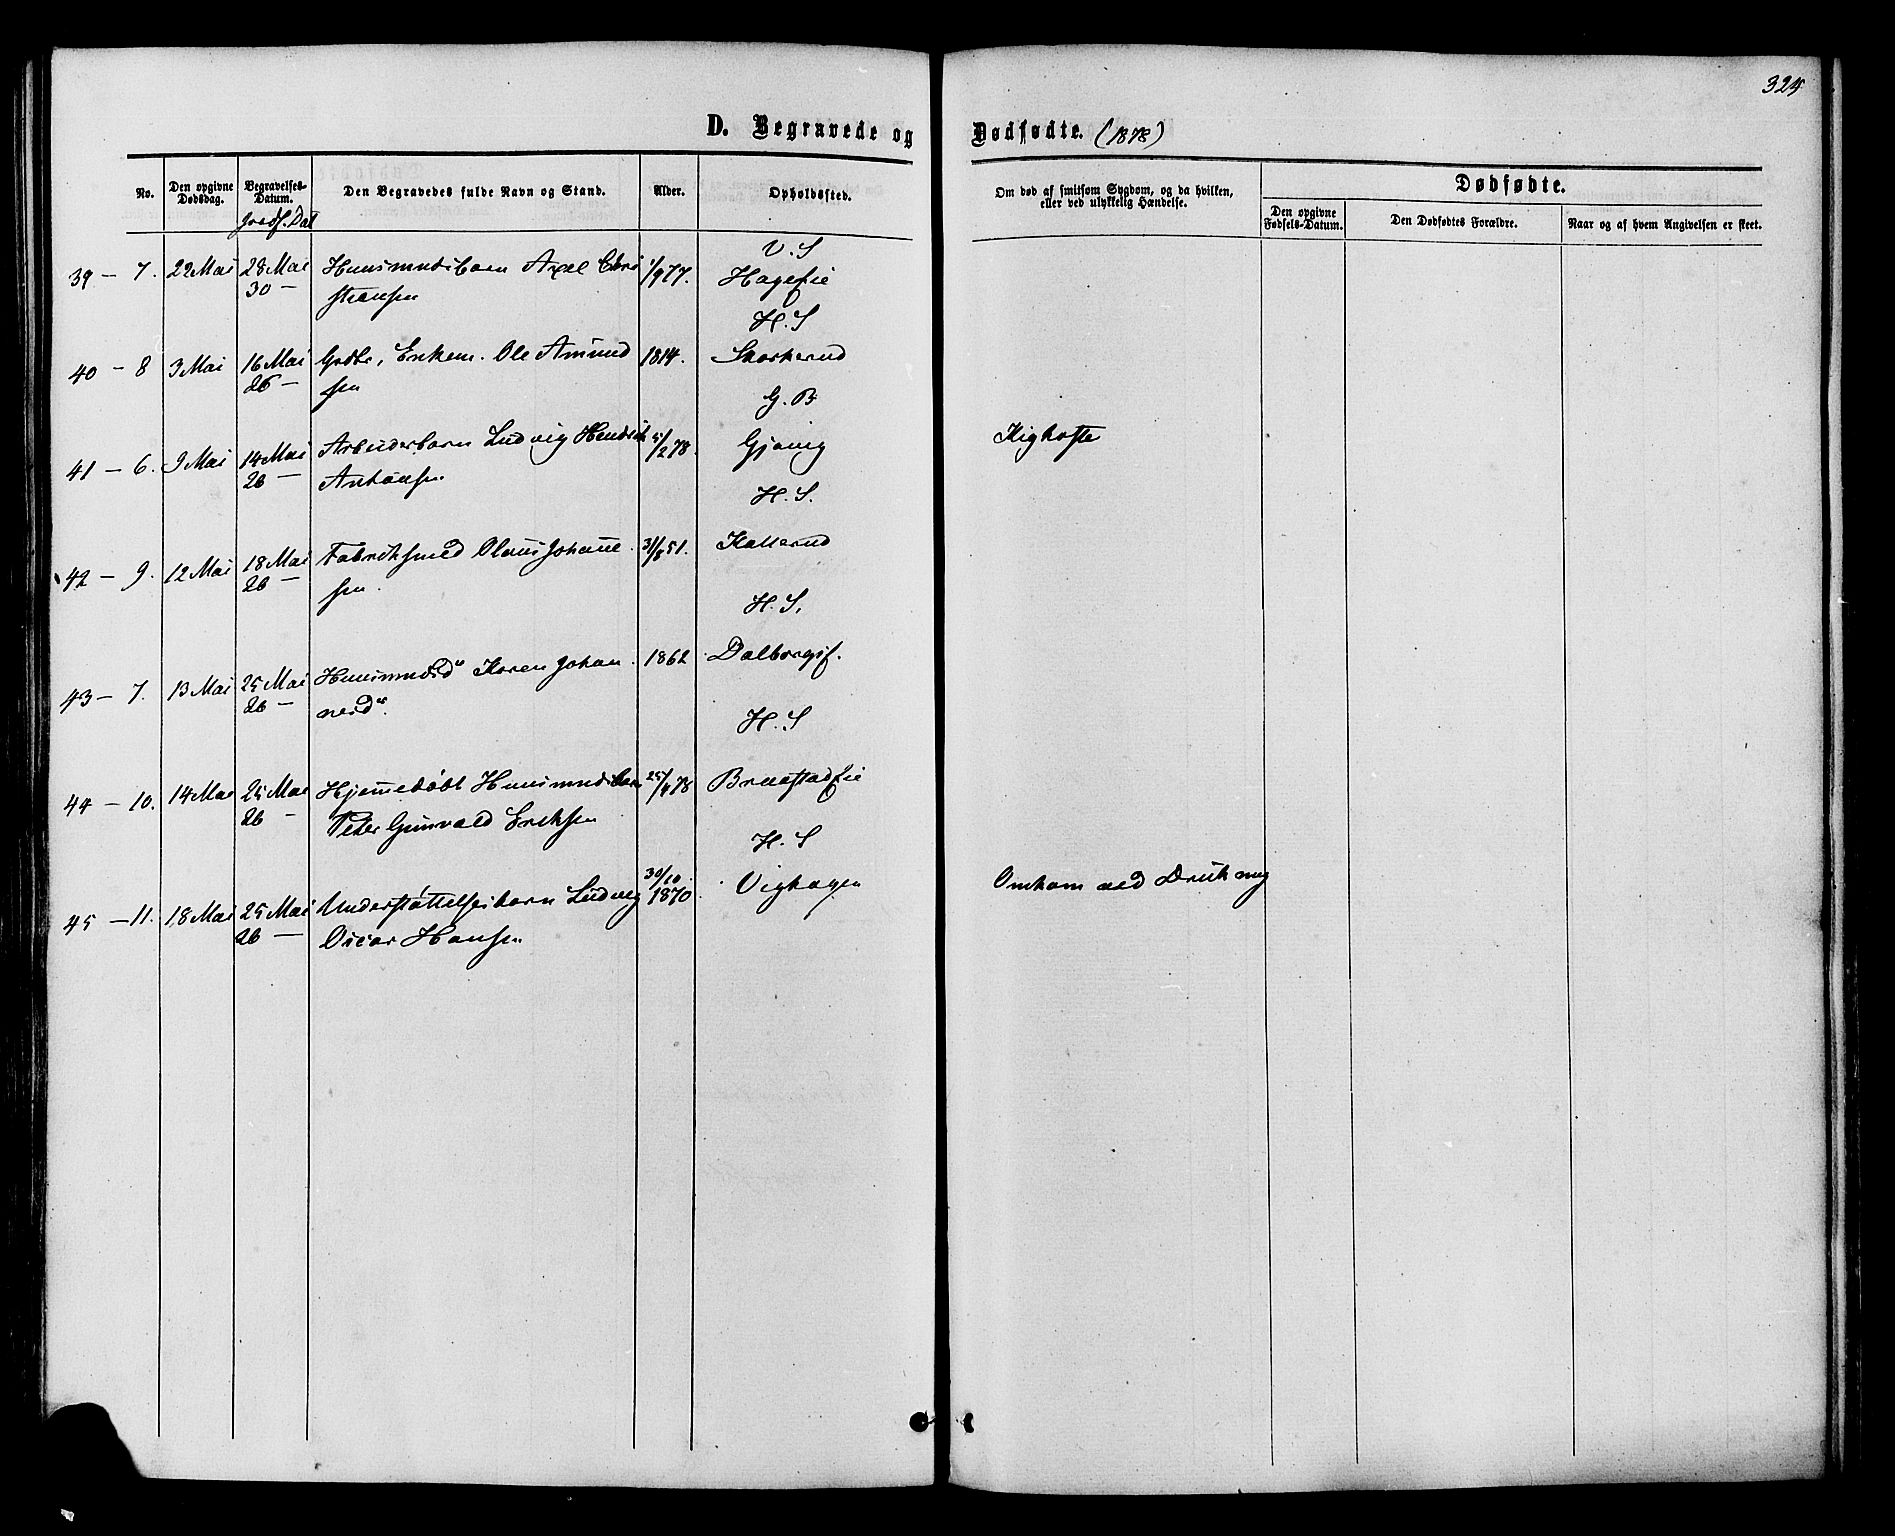 324
D. Begravede og Dødfødte. (1878)
No.
Den opgivne Dødsdag.
Begravelses-Datum.
Jordf. Dat
Den Begravedes fulde Navn og Stand.
Alder.
Opholdssted.
Om død af smitsom Sygdom, og da hvilken, eller ved ulykkelig Hændelse.
Dødfødte.
Den opgivne Fødsels-Datum.
Den Dødfødtes Forældre.
Naar og af hvem Angivelsen er skeet.
V. S
39 - 7. 22 Mai 28 Mai Huusmndsbarn Axel Chri 1/9 77. Hageeie
30 - stiansen
H. S
40 - 8 3 Mai 16 Mai Gdbr, Enkem. Ole Amund 1814. Skorkerud
26 - sen
G. B
41 - 6. 9 Mai 14 Mai Arbeiderbarn Ludvig Hendrik 5/2 78. Gjøvig Kighoste
26 - Antonsen
H. S.
42 - 9. 12 Mai 18 Mai Fabriksmed Olaus Johanne 31/8 51. Kallerud
26 - sen.
H. S.
43 - 7. 13 Mai 25 Mai Huusmnds d" Karen Johan 1862 Dalborgsf.
26 - nesd".
H. S
44 - 10. 14 Mai 25 Mai Hjemmedøbt Huusmndsbarn 25/4 78 Braastadeie
26 - Peter Gunvald Eriksen
H. S
45 - 11. 18 Mai 25 Mai Understøttelsesbarn Ludvig 30/10 1870. Vighagen Omkom ved Drukning
26 - Oscar Hansen